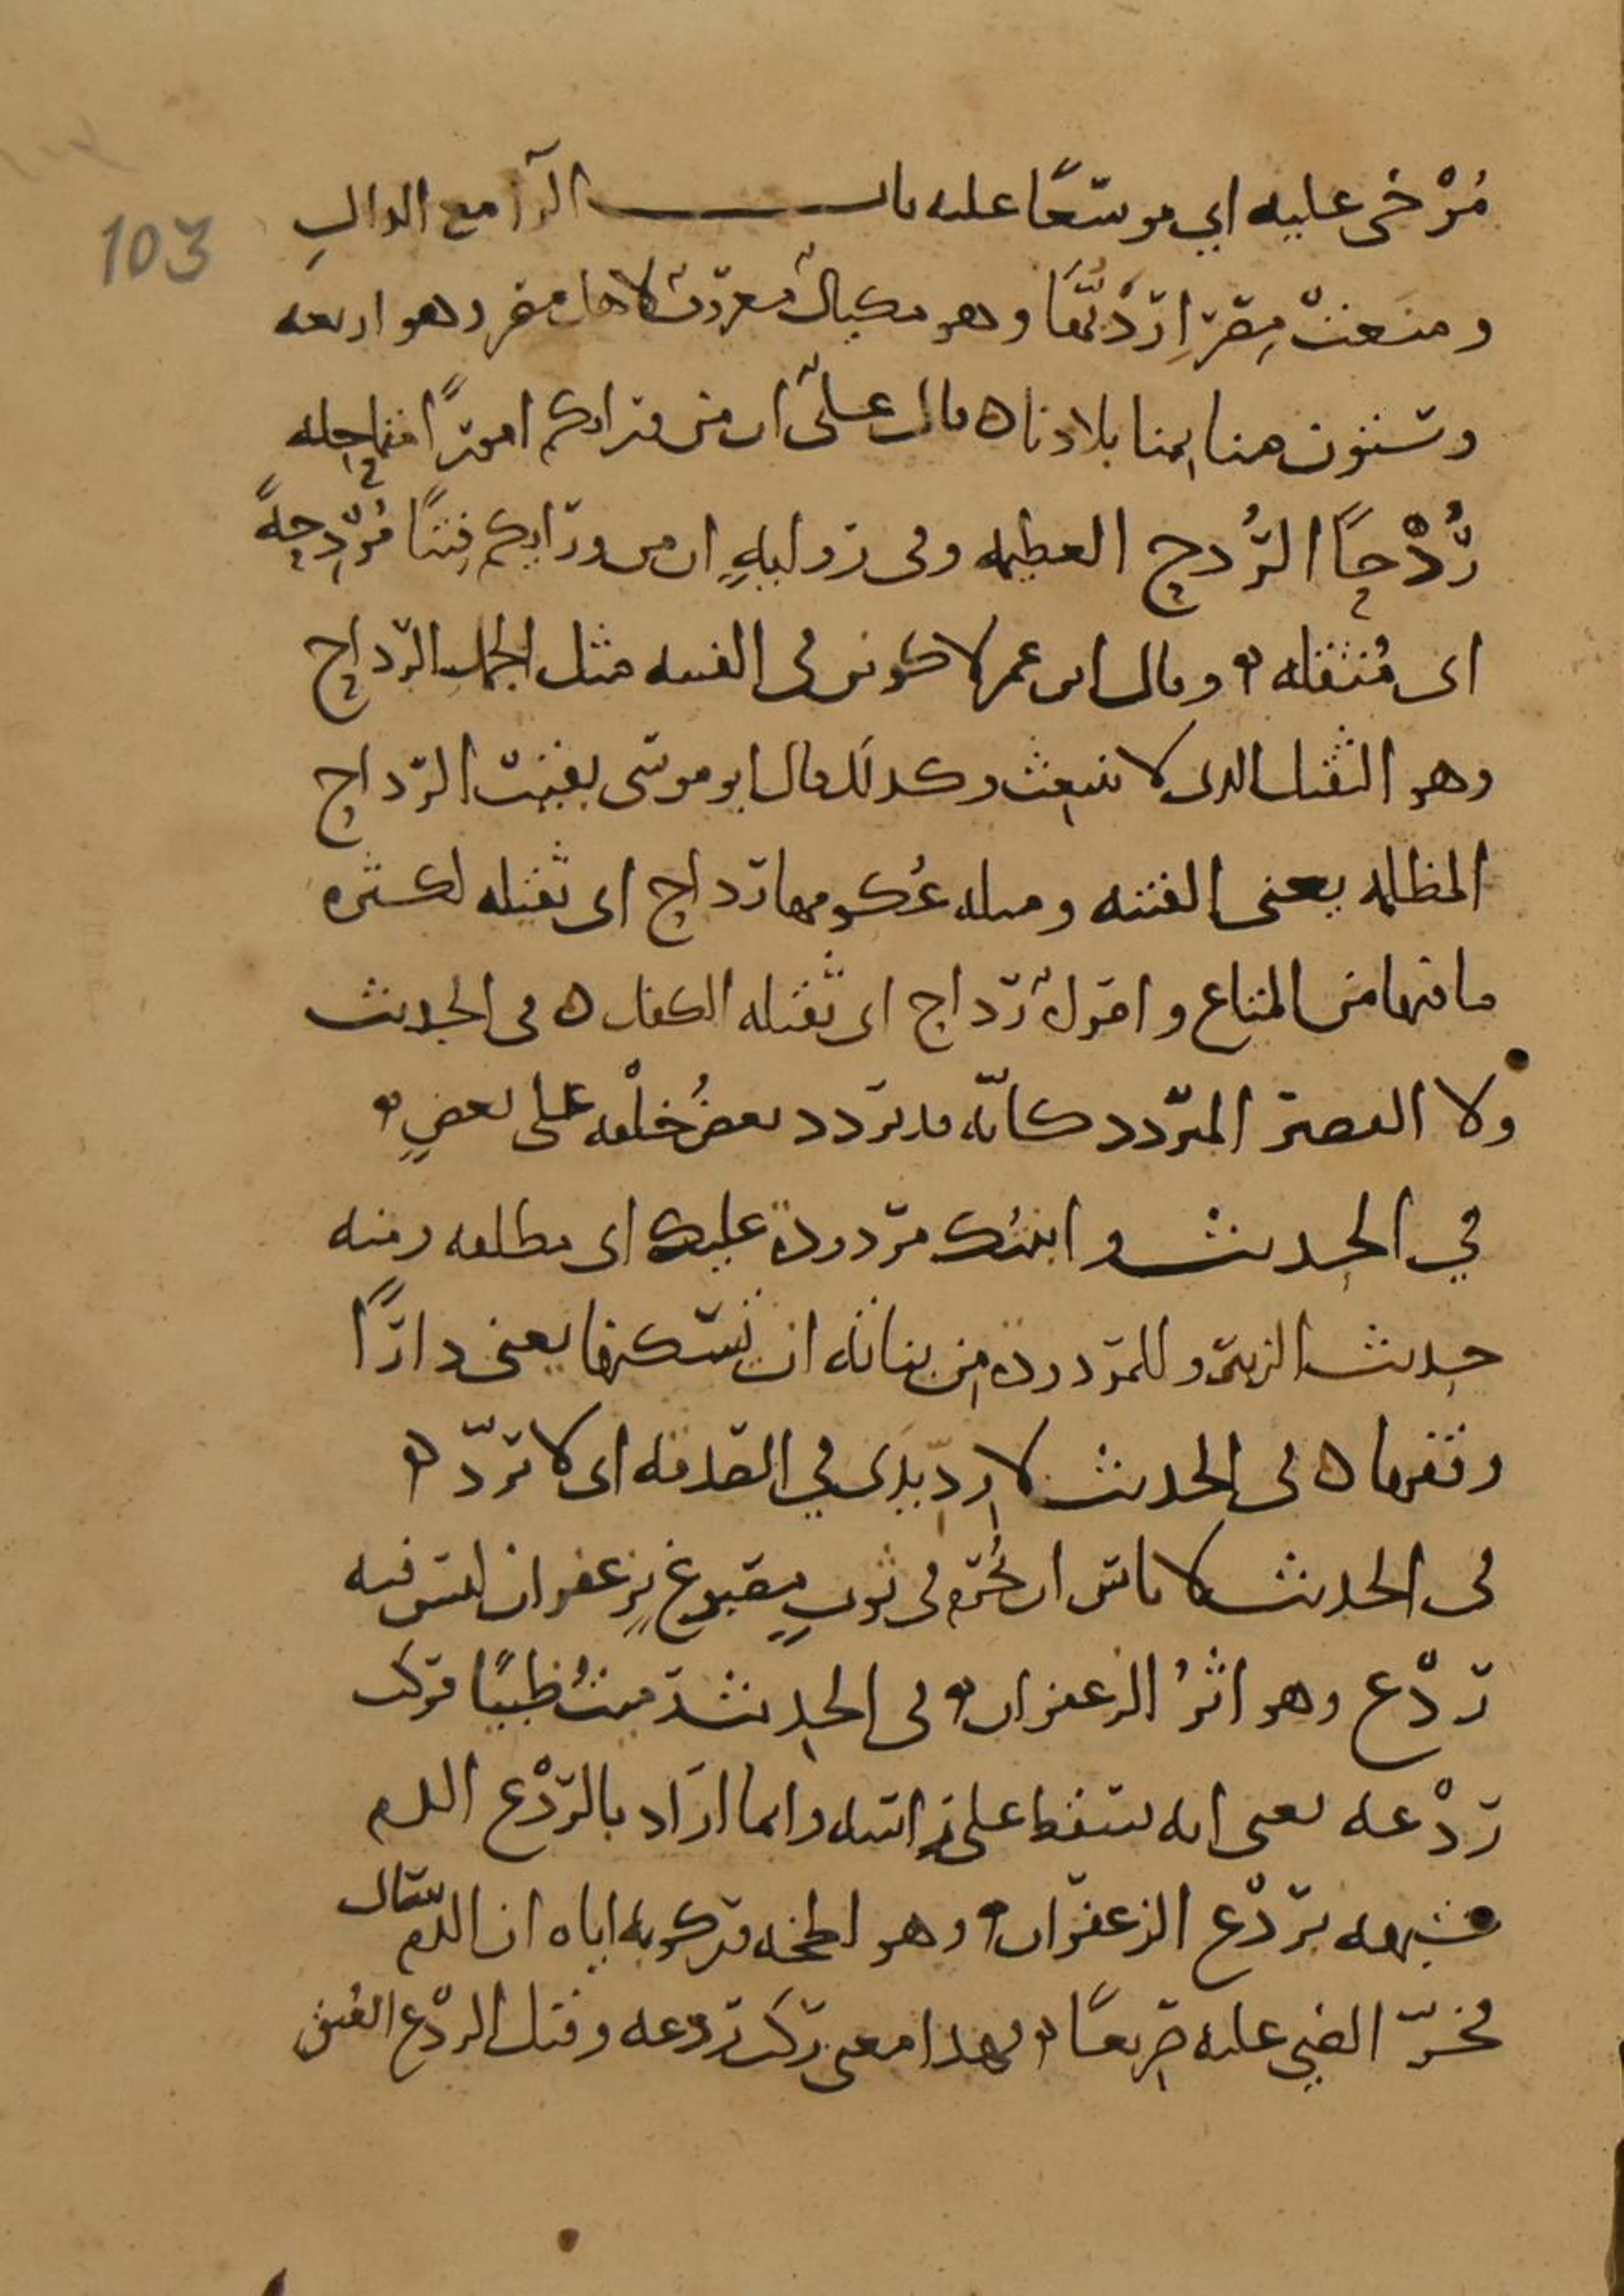 103
مُرْخى عليه اي موسّعًا عليه باب الرآ مع الدالِ
ومنعتْ مِصْرُ اِرْدَبَّهَا وهو مكيالٌ معروفٌ لاهل مصر وهو اربعه
وستون منا بمنا بلادنا ه قال عليٌّ ان من ورائكم امورًا متماحله
رُدْحًا الرُّدح العظيمه وفى روايهٍ ان من ورائكم فِتنًا مُرْدِحةً
اى مُثقله ه وقال ابن عمر لاكونن فى الفتنه مثل الجمل الرَّداح
وهو الثقيل الذى لا ينبعث وكذلك قال ابو موسى بقيت الرَّداح
المظلمه يعنى الفتنه ومثله عُكومها رَداح اى ثقيله لكثره
ما فيها من المتاع وامراةٌ رَداح اى ثقيله الكفل ه فى الحديث
ولا القصير المتردد كانّه قد تردد بعضُ خلْقه على بعضٍ ه
في الحديث وابنتُك مردودةٌ عليك اى مطلقه ومنه
حديث الزبير وللمردوده من بناته ان تسكنها يعنى دارًا
وقفها ه فى الحديث لا رِدِّيدَى في الصدقه اى لا تردّ ه
فى الحديث لا باس ان يُحرم فى ثوبٍ مصبوغٍ بزعفران ليس فيه
رَدْع وهو اثرُ الزعفران ه فى الحديث رميتُ ظبيًا فركب
رَدْعه يعنى انه سقط على راسه وانما اراد بالرَّدْع الدم
شبهه بردْع الزعفران ه وهو لطخه وركوبه اياه ان الدم سال
فخرّ الظبي عليه صريعًا ه فهذا معنى ركب ردعه وقيل الردْع العُنق